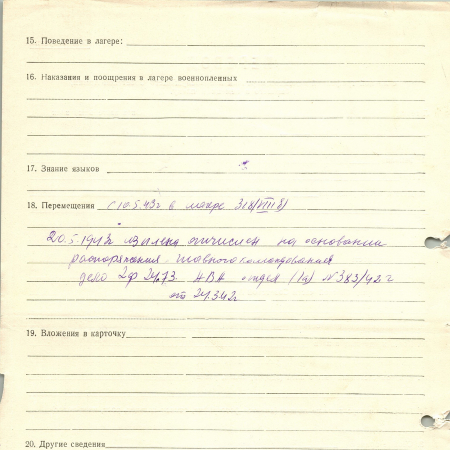 15. Поведение в лагере:
16. Наказания и поощрения в лагере военнопленных
17. Знание языков
18. Перемещения С 10.5.43г в лагре 318/VIII
20.5.1943г из плена отчислен на основании
распоряжения главнокомандования
дело 2ф 24.73. АВА отдел (Iа) № 383/42 г
от 24.3.42г
19. Вложения в карточку
20. Другие сведения